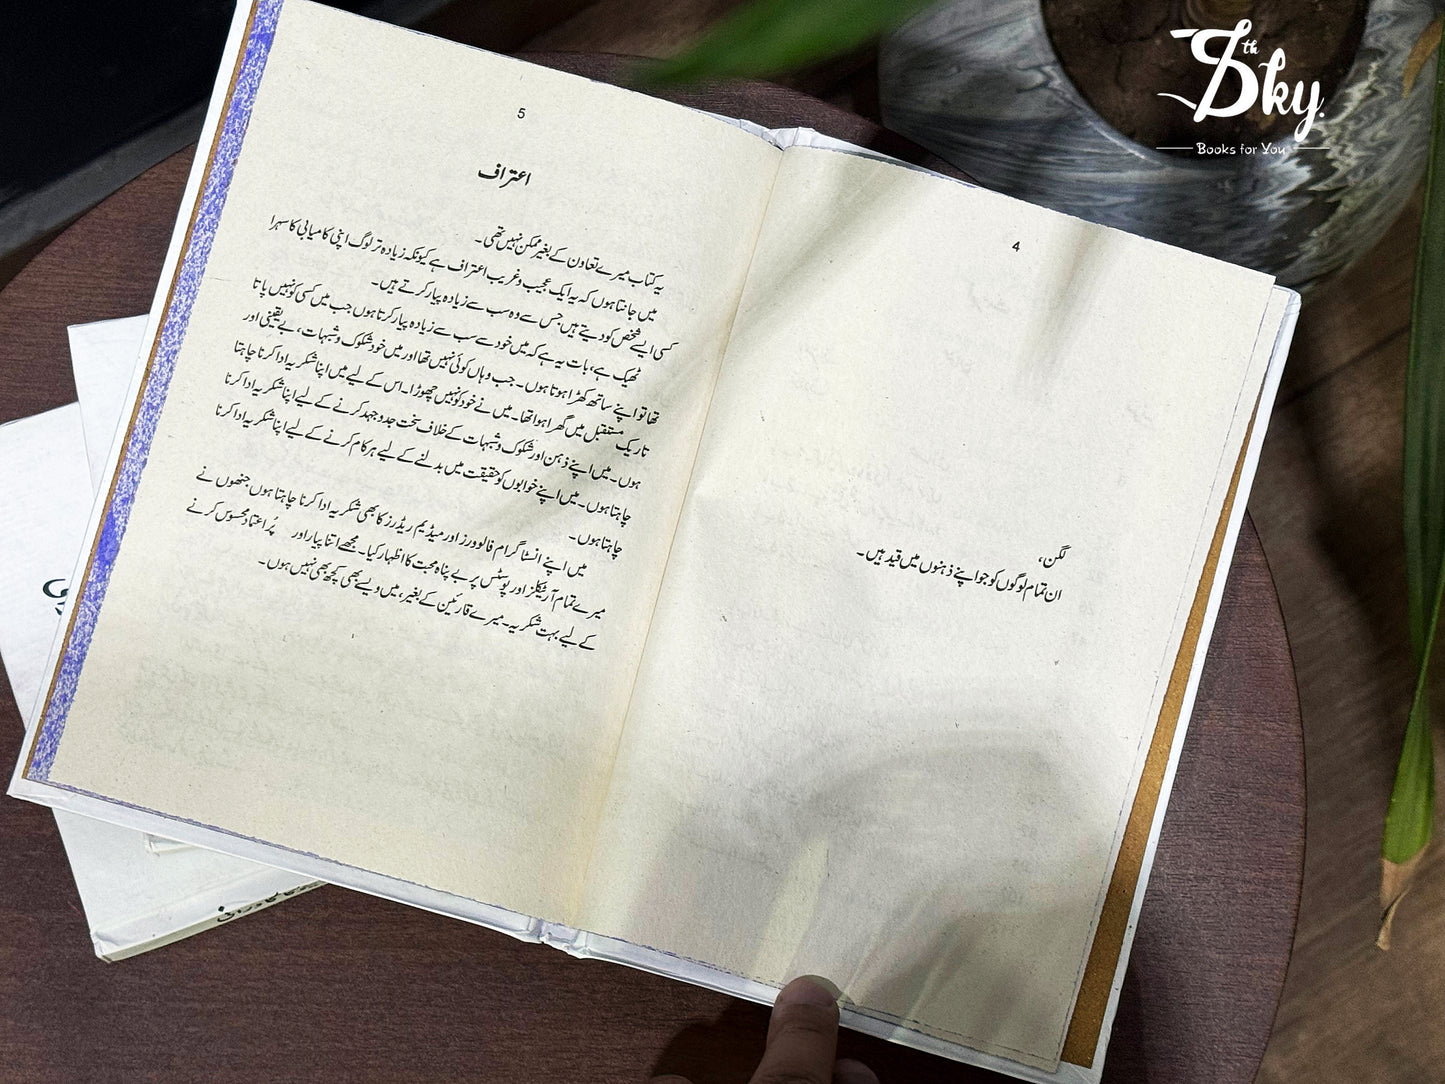 5
اعتراف
یہ کتاب میرے تعاون کے بغیر ممکن نہیں تھی۔
میں جانتا ہوں کہ یہ ایک عجیب و غریب اعتراف ہے کیونکہ زیادہ تر لوگ اپنی کامیابی کا سہرا
کسی ایسے شخص کو دیتے ہیں جس سے وہ سب سے زیادہ پیار کرتے ہیں۔
ٹھیک ہے، بات یہ ہے کہ میں خود سے سب سے زیادہ پیار کرتا ہوں جب میں کسی کو نہیں پاتا
تھا تو اپنے ساتھ کھڑا ہوتا ہوں۔ جب وہاں کوئی نہیں تھا اور میں خود شکوک و شبہات، بے یقینی اور
تاریک مستقبل میں گھرا ہوا تھا۔ میں نے خود کو نہیں چھوڑا۔ اس کے لیے میں اپنا شکریہ ادا کرنا چاہتا
ہوں۔ میں اپنے ذہن اور شکوک و شبہات کے خلاف سخت جدوجہد کرنے کے لیے اپنا شکریہ ادا کرنا
چاہتا ہوں۔ میں اپنے خوابوں کو حقیقت میں بدلنے کے لیے ہر کام کرنے کے لیے اپنا شکریہ ادا کرنا
چاہتا ہوں۔
میں اپنے انسٹاگرام فالوورز اور میڈیم ریڈرز کا بھی شکریہ ادا کرنا چاہتا ہوں جنھوں نے
میرے تمام آرٹیکلز اور پوسٹس پر بے پناہ محبت کا اظہار کیا۔ مجھے اتنا پیار اور پُراعتماد محسوس کرنے
کے لیے بہت شکریہ۔ میرے قارئین کے بغیر، میں ویسے بھی کچھ بھی نہیں ہوں۔
4
لگن،
ان تمام لوگوں کو جو اپنے ذہنوں میں قید ہیں۔
th Sky.
Books for You